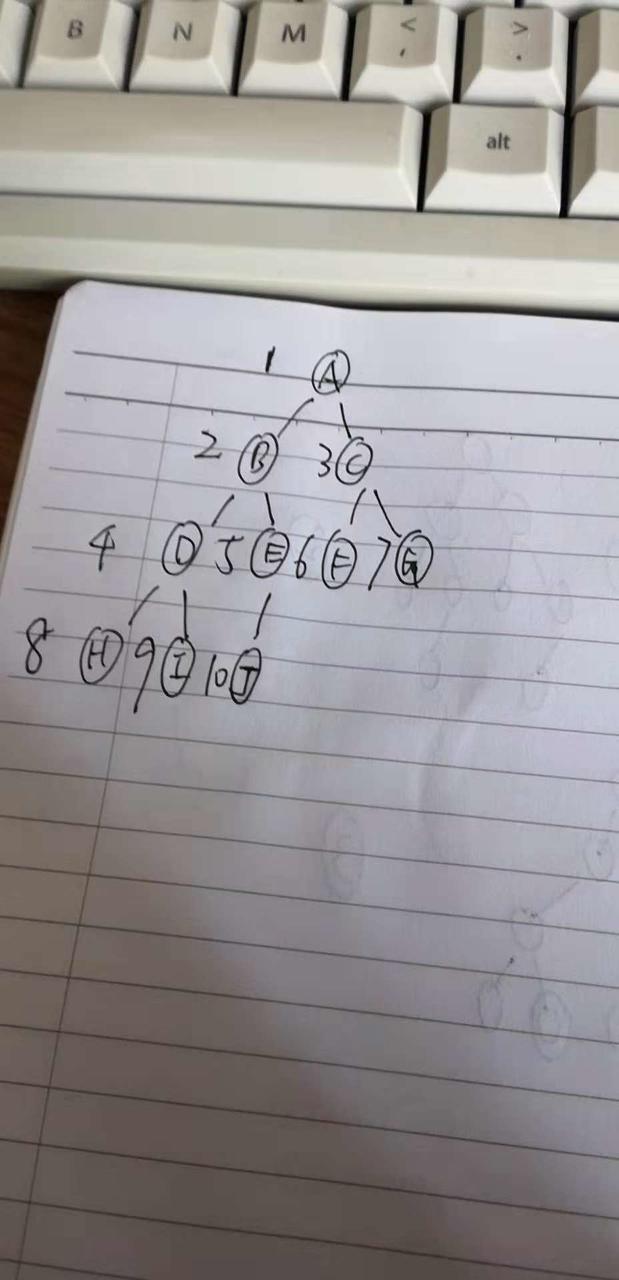 B N M < , > .
alt
1 A
2 B 3 C
4 D 5 E 6 F 7 G
8 H 9 I 10 J